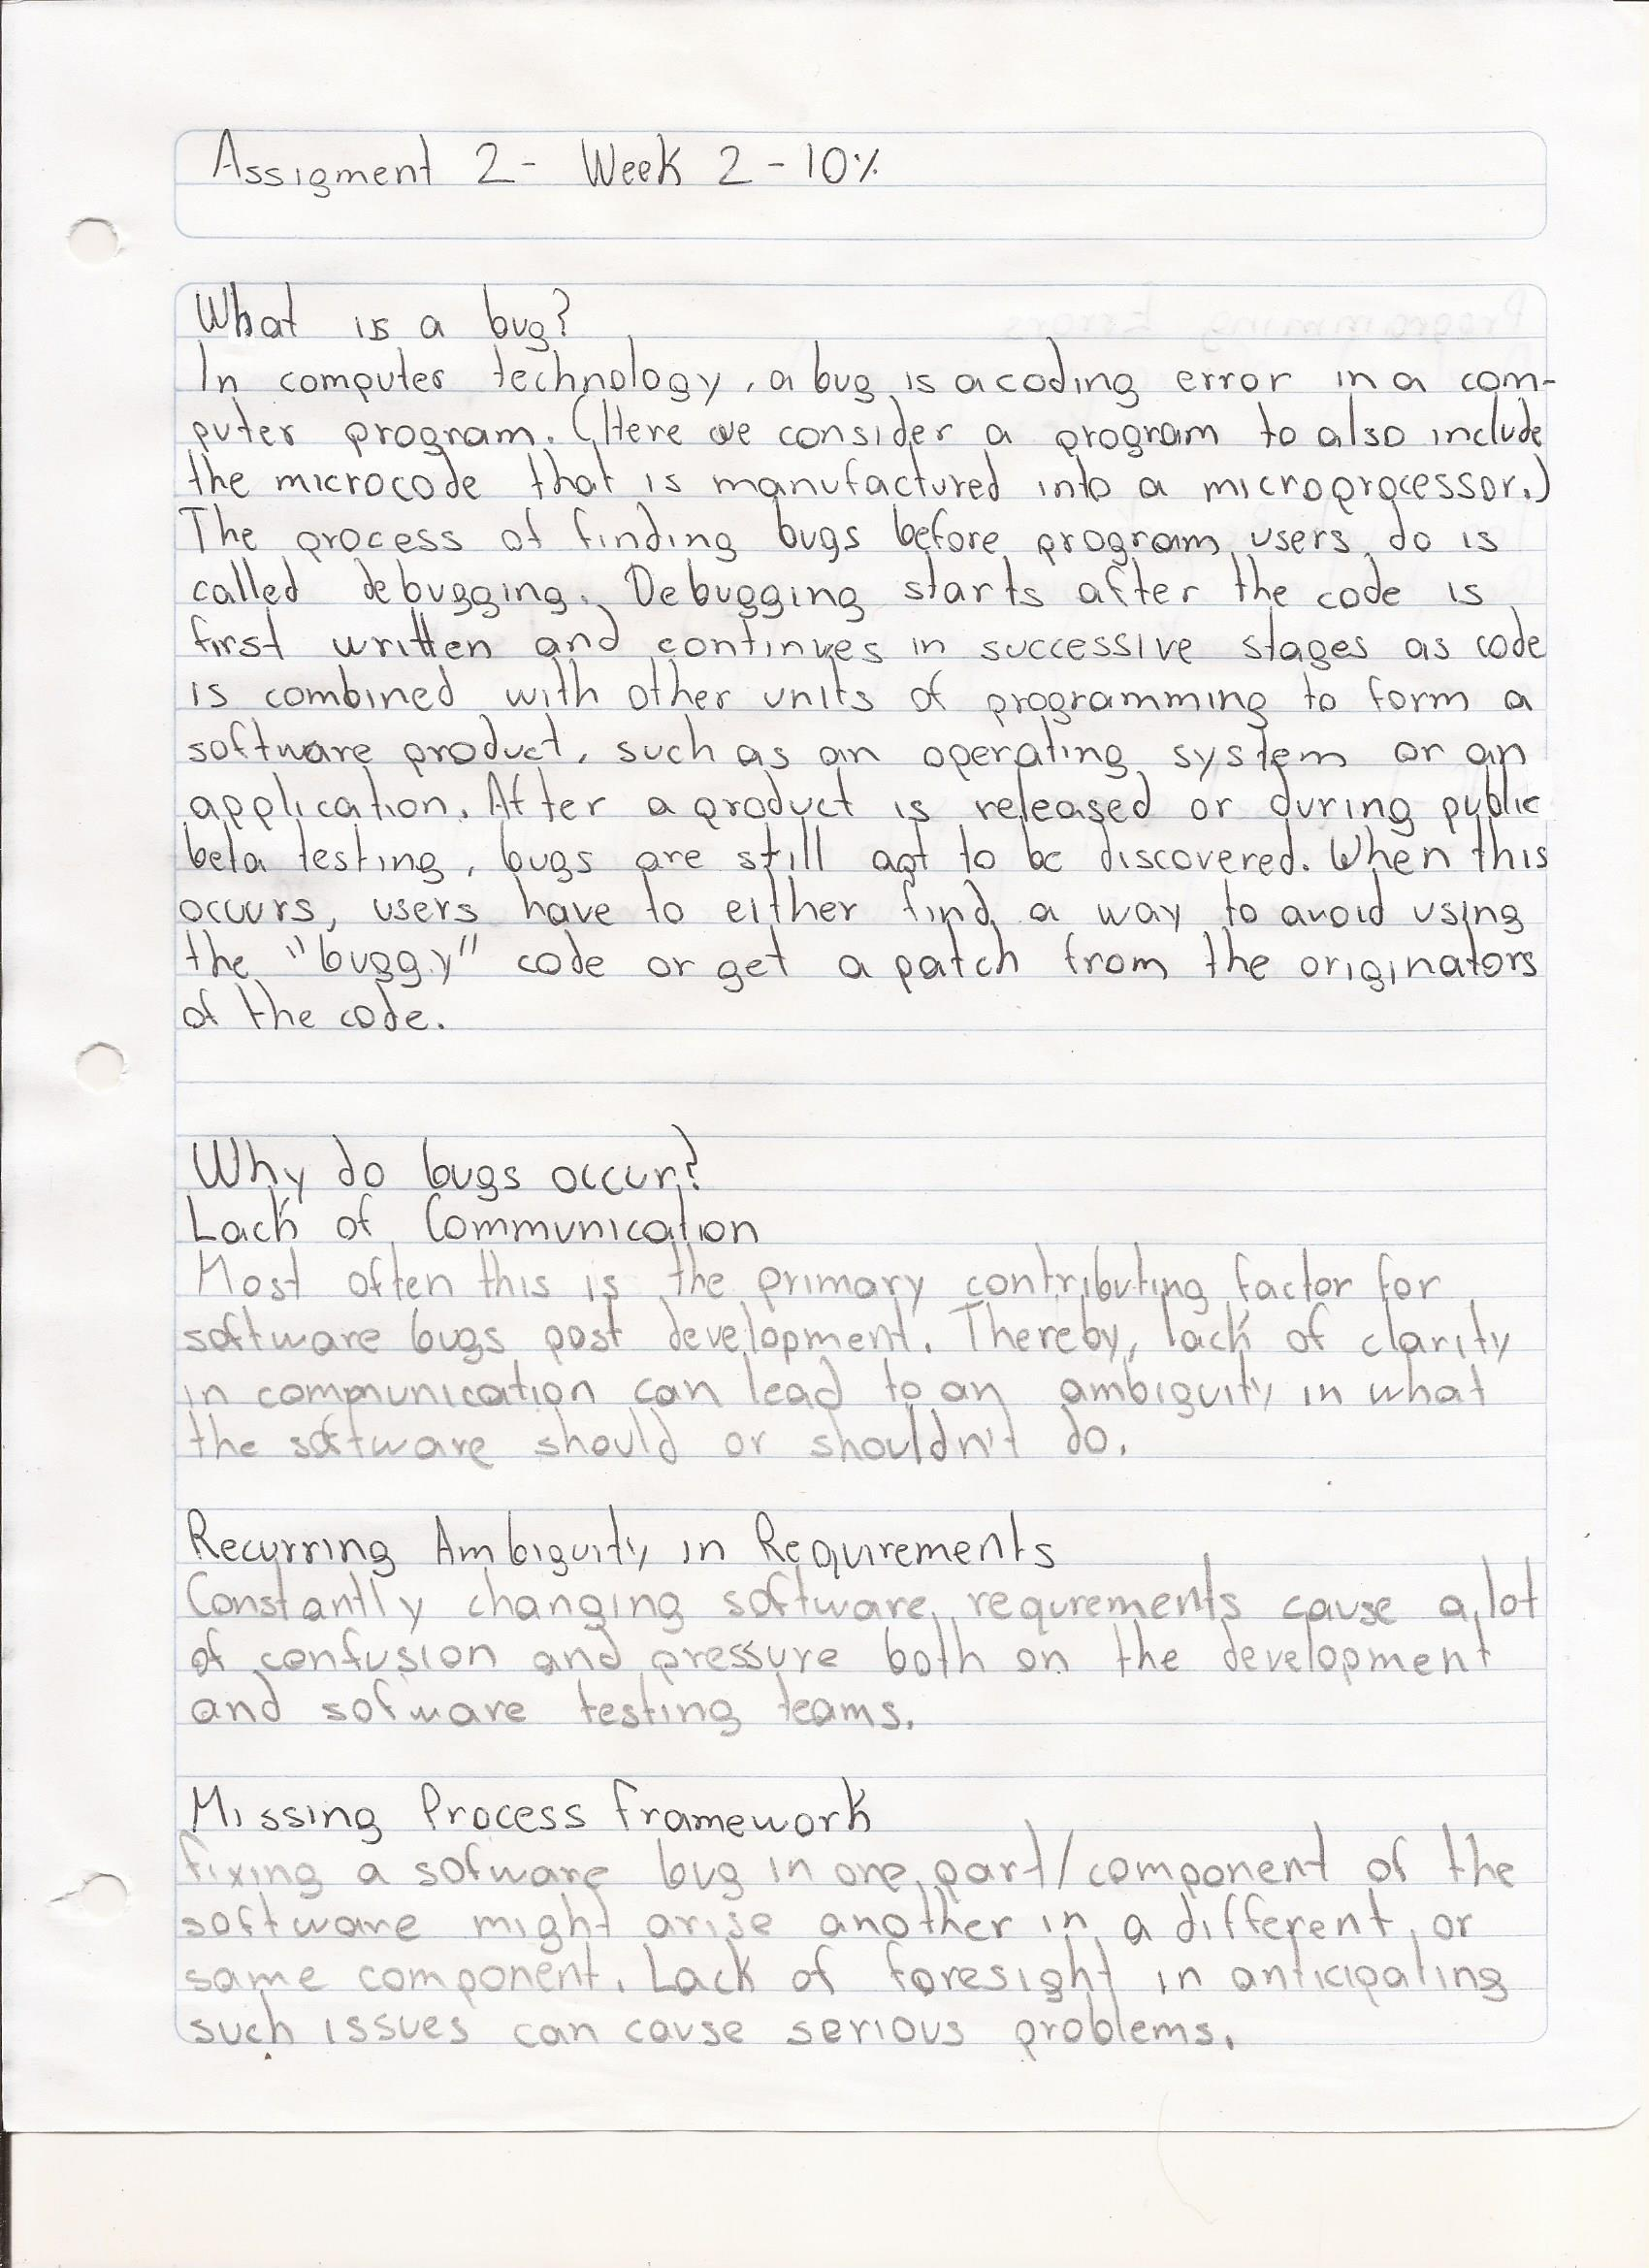 Assigment 2 - Week 2 - 10%
What is a bug?
In computer technology, a bug is a coding error in a com-
puter program. (Here we consider a program to also include
the microcode that is manufactured into a microprocessor.)
The process of finding bugs before program users do is
called debugging. Debugging starts after the code is
first written and continues in successive stages as code
is combined with other units of programming to form a
software product, such as an operating system or an
application. After a product is released or during public
beta testing, bugs are still apt to be discovered. When this
occurs, users have to either find a way to avoid using
the "buggy" code or get a patch from the originators
of the code.
Why do bugs occur?
Lack of Communication
Most often this is the primary contributing factor for
software bugs post development. Thereby, lack of clarity
in communication can lead to an ambiguity in what
the software should or shouldn't do.
Recurring Ambiguity in Requirements
Constantly changing software requrements cause a lot
of confusion and pressure both on the development
and sofware testing teams.
Missing Process Framework
Fixing a sofware bug in one part/component of the
software might arise another in a different or
same component. Lack of foresight in anticipating
such issues can cause serious problems.